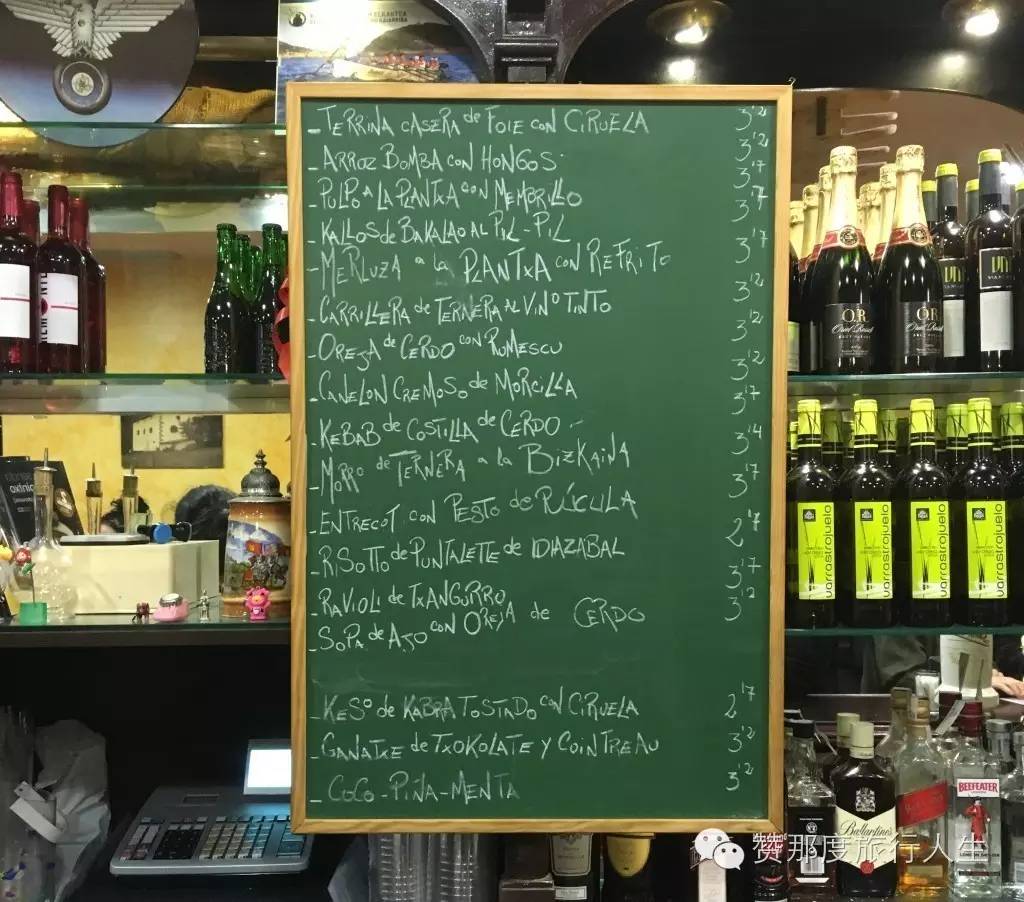 - TERRINA CASERA de FOIE CON CIRUELA 3'2
- ARROZ BOMBA CON HONGOS 3'2
- PULPO A LA PLANTXA CON MEMBRILLO 3'7
- KALLOS de BAKALAO AL PIL-PIL 3'7
- MERLUZA a la PLANTXA CON REFRITO 3'7
- CARRILLERA de TERNERA AL VINO TINTO 3'2
- OREJA de CERDO CON ROMESCU 3'2
- CANELON CREMOSO de MORCILLA 3'2
- KEBAB de COSTILLA de CERDO 3'7
- MORRO de TERNERA a la BIZKAINA 3'4
- ENTRECOT CON PESTO de RÚCULA 3'7
- RISOTTO de PUNTALETTE de IDIAZABAL 2'7
- RAVIOLI de TXANGURRO 3'7
- SOPA de AJO CON OREJA de CERDO 3'2
- KESO de KABRA TOSTADO CON CIRUELA 2'7
- GANATXE de TXOKOLATE Y COINTREAU 3'2
- COCO-PIÑA-MENTA 3'2
O.R.
varrastrojuelo
varrastrojuelo
varrastrojuelo
varrastrojuelo
BEEFEATER
Ballantine's
赞那度旅行人生